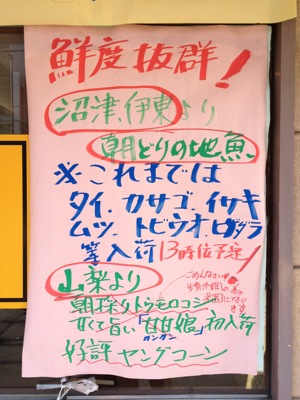 鮮度抜群!
沼津、伊東より
朝どりの地魚、
※これまでは
タイ、カサゴ、イサキ
ムツ、トビウオ、ヒゲダラ
等入荷 13時位予定!
山梨より
朝採りトウモロコシ
甘くて旨い「甘甘娘」初入荷
カンカン
好評 ヤングコーン
ごめんなさい!!